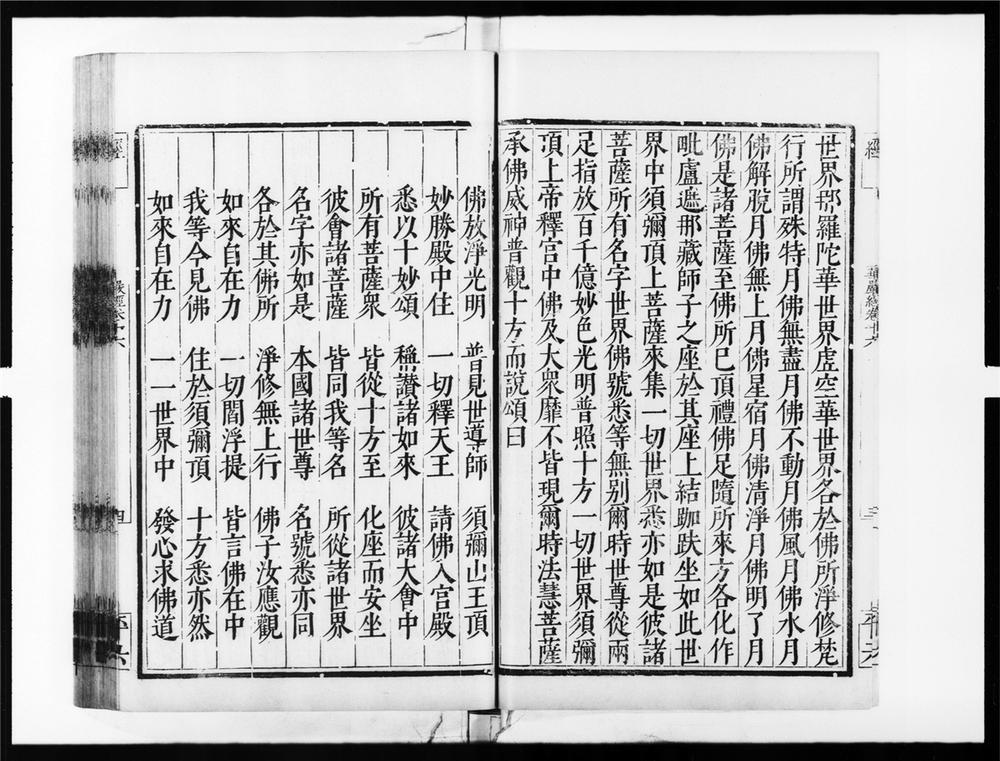 世界那羅陀華世界虛空華世界各於佛所淨修梵
行所謂殊特月佛無盡月佛不動月佛風月佛水月
佛解脫月佛無上月佛星宿月佛清淨月佛明了月
佛是諸菩薩至佛所已頂禮佛足隨所來方各化作
毗盧遮那藏師子之座於其座上結跏趺坐如此世
界中須彌頂上菩薩來集一切世界悉亦如是彼諸
菩薩所有名字世界佛號悉等無別爾時世尊從兩
足指放百千億妙色光明普照十方一切世界須彌
頂上帝釋宮中佛及大眾靡不皆現爾時法慧菩薩
承佛威神普觀十方而說頌曰
佛放淨光明 普見世導師 須彌山王頂
妙勝殿中住 一切釋天王 請佛入宮殿
悉以十妙頌 稱讚諸如來 彼諸大會中
所有菩薩眾 皆從十方至 化座而安坐
彼會諸菩薩 皆同我等名 所從諸世界
名字亦如是 本國諸世尊 名號悉亦同
各於其佛所 淨修無上行 佛子汝應觀
如來自在力 一切閻浮提 皆言佛在中
我等今見佛 住於須彌頂 十方悉亦然
如來自在力 一一世界中 發心求佛道